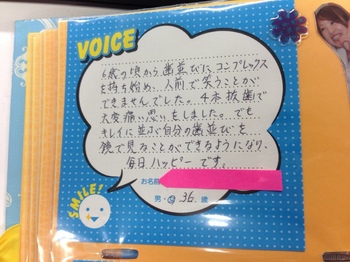 VOICE
6歳の頃から歯並びにコンプレックス
を持ち始め、人前で笑うことが
できませんでした。4本抜歯で
大変痛い思いをしました。でも
キレイに並ぶ自分の歯並びを
鏡で見ることができるようになり、
毎日ハッピーです。
お名前
男・女 36 歳
SMILE!